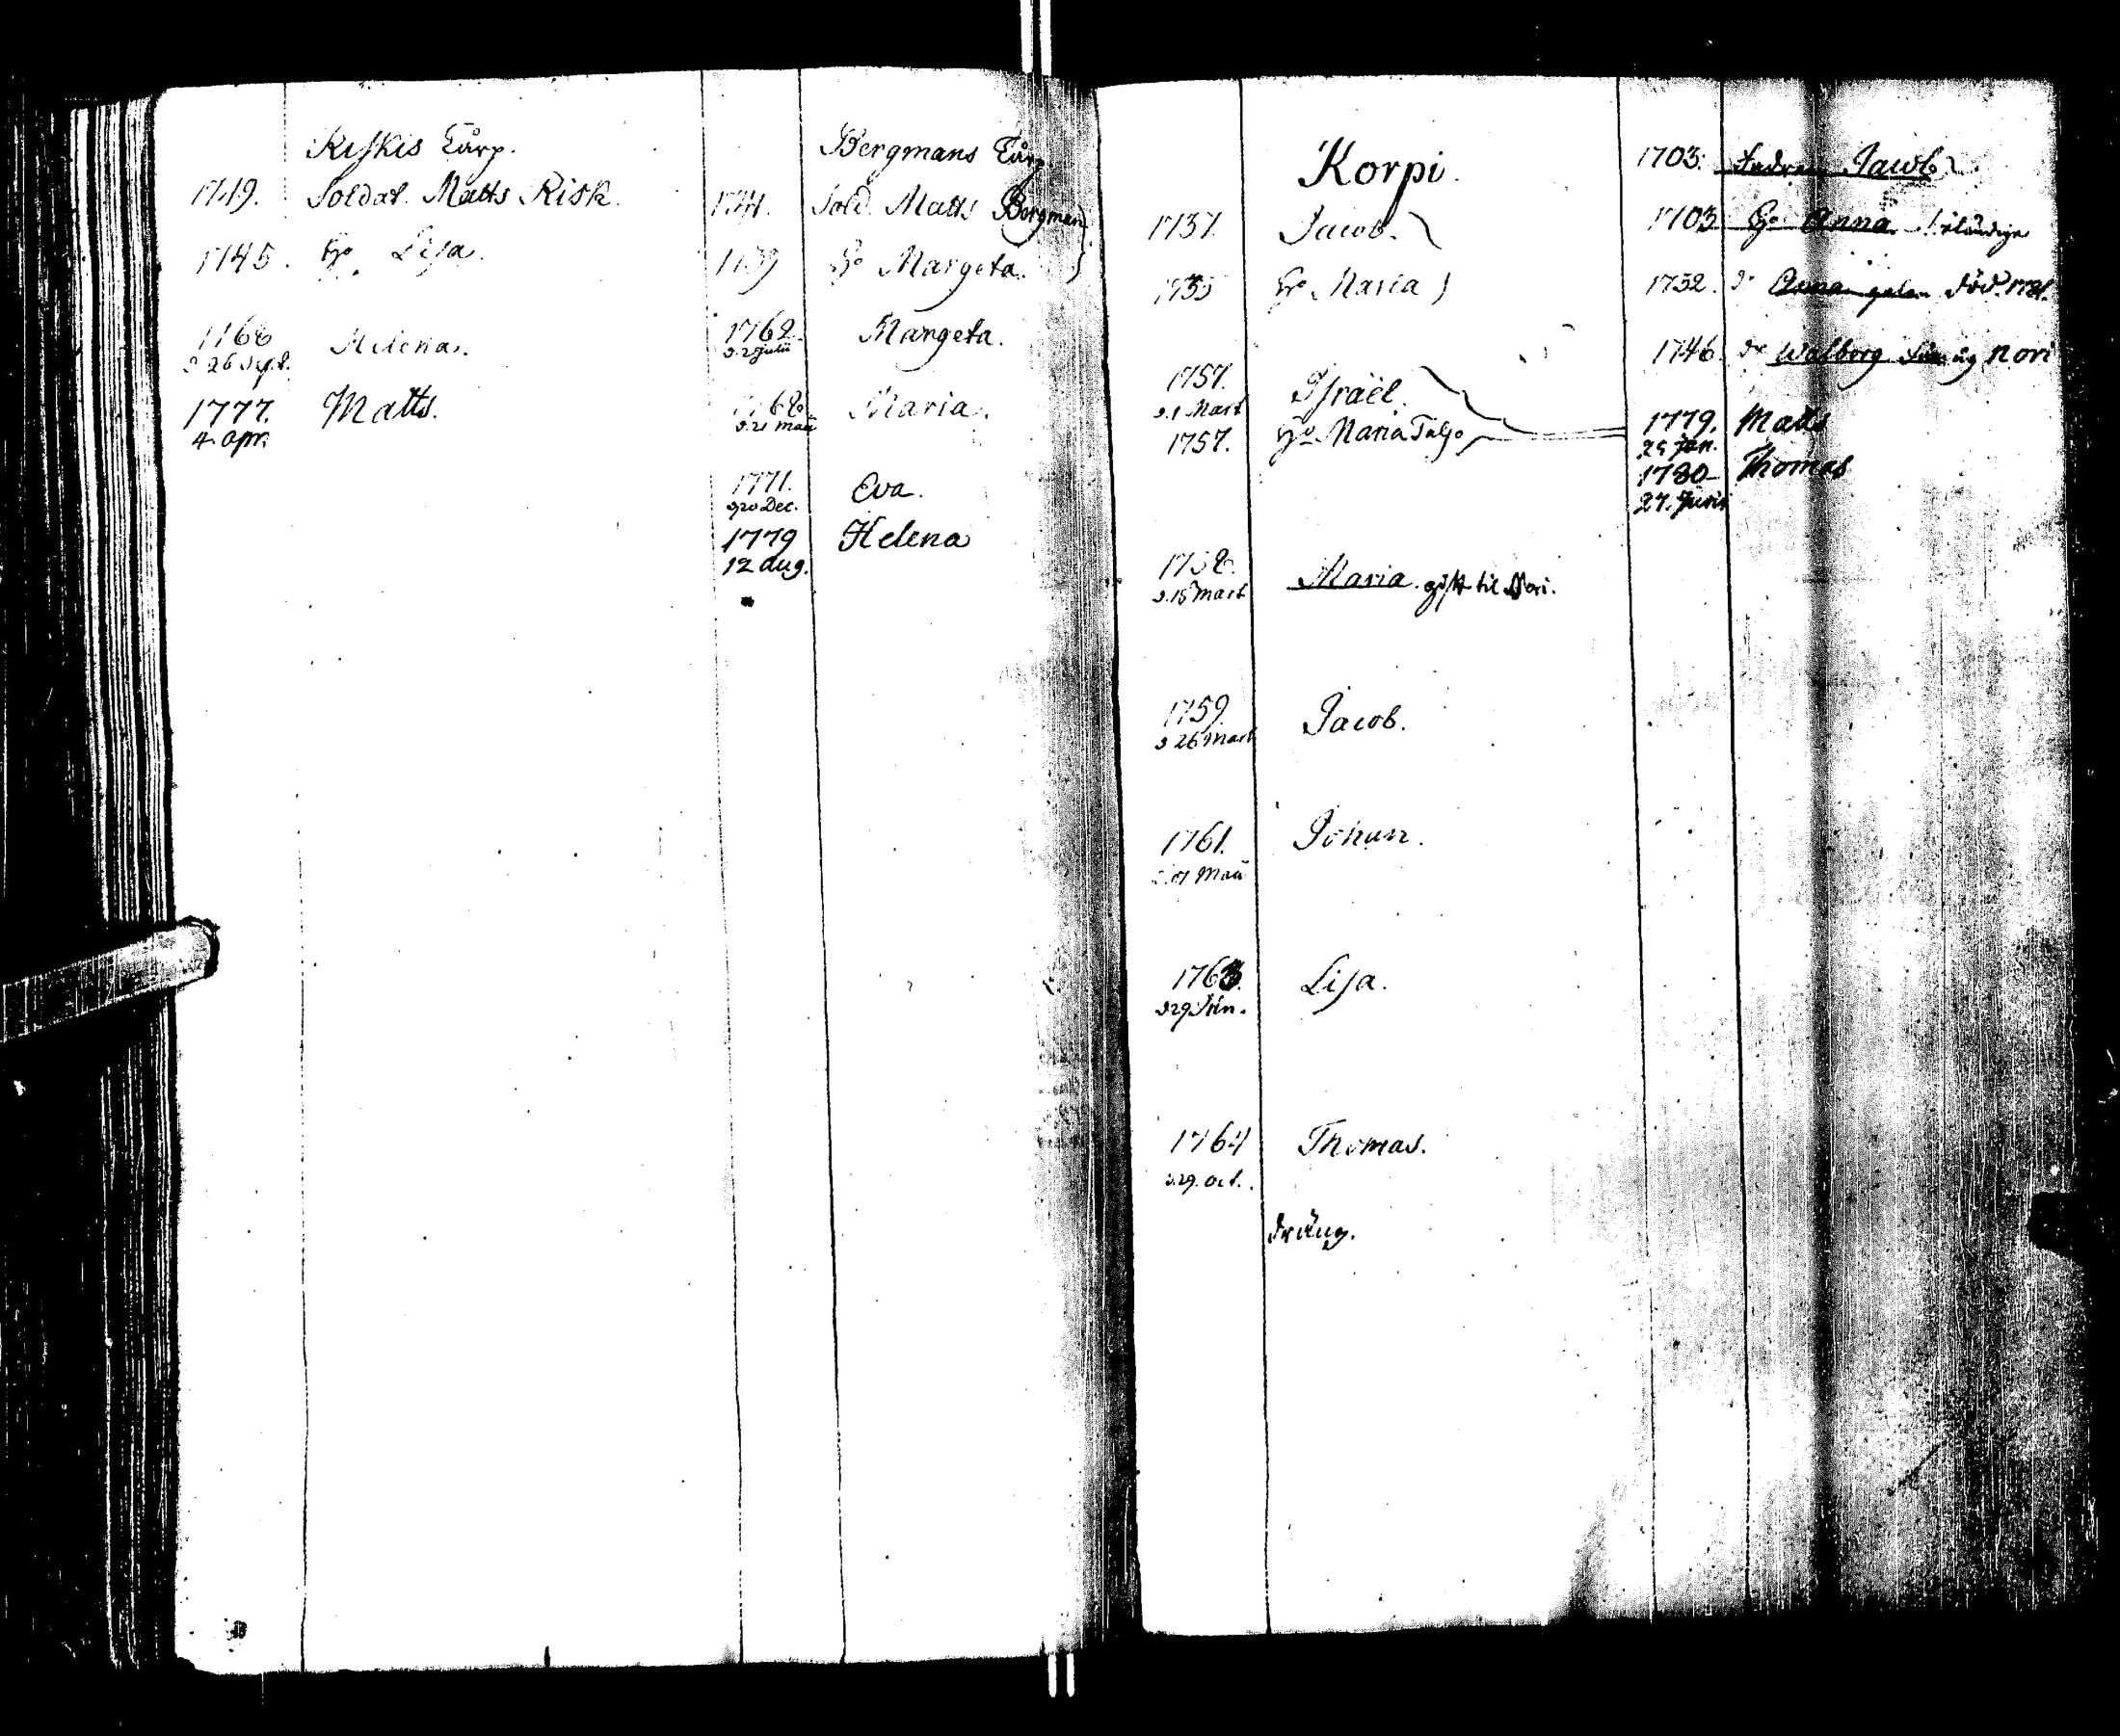 Riskis Tårp.
1749. Soldat. Matts Risk.
1745. Ho Lisa.
1768 Helena.
d. 26 Sept.
1777. Matts.
4. apr.
Bergmans Tårp.
1741. Sold. Matts Bergman
1739 Ho Margeta.
1762. Margeta.
d. 2 julii
1768 Maria.
d. 21 Maii
1771. Eva.
d 20 Dec.
1779 Helena
12 aug.
Korpi.
1737. Jacob.
1735 Ho Maria
1757. Israël.
d. 1 Mart
1757. Ho Maria
1758. Maria. gift til Nori.
d. 15 Mart
1759. Jacob.
d 26 Mart
1761. Johan.
Maii
1763. Lisa.
d 29 Jun.
1764 Thomas.
d. 29. oct.
dräng.
1703. Jacob
1703 Ho Anna
1752. dr Anna galen död. 1781.
1746. dr Walborg Nori
1779. Matts
25 jan.
1780 Thomas
27. Junii